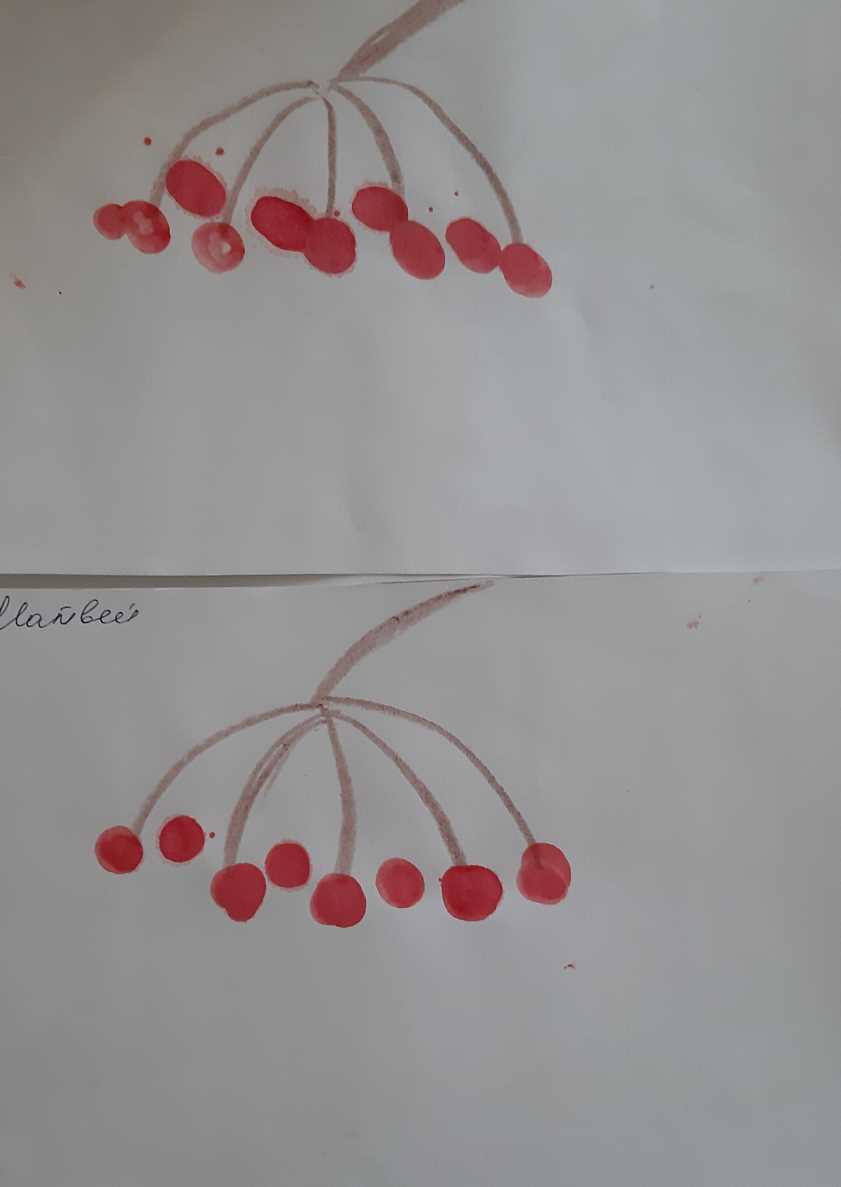 Матвей